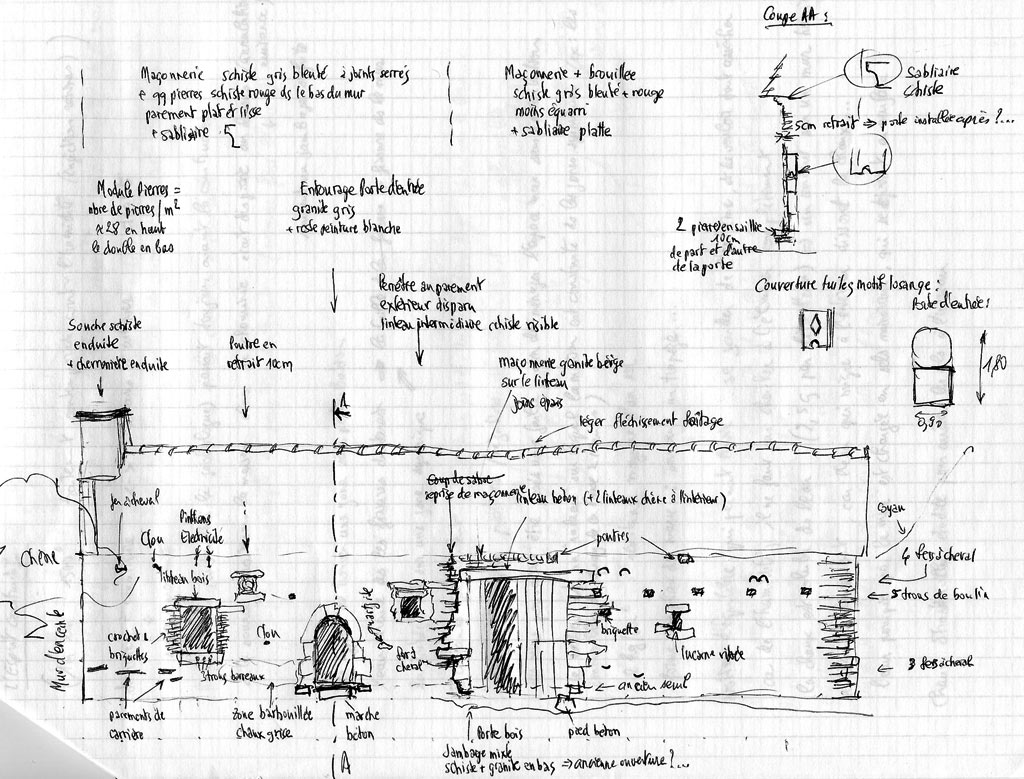 Coupe AA :
Maçonnerie schiste gris bleuté à joints serrés
e qq pierres schiste rouge ds le bas du mur
parement plat et lisse
+ sablière
Maçonnerie + brouillée
schiste gris bleuté + rouge
moins équarri
+ sablière platte
Sablière
schiste
5cm retrait ⇒ porte installée après ?...
Module Pierres =
nbre de pierres/m²
≈ 28 en haut
le double en bas
Entourage Porte d'entrée
granite gris
+ reste peinture blanche
2 pierres en saillie
10cm
de part et d'autre
de la porte
Fenêtre au parement
extérieur disparu
linteau intermédiaire schiste visible
Couverture tuiles motif losange :
Porte d'entrée :
1,80
0,90
Souche schiste
enduite
+ cheminière enduite
Poutre en
retrait 10cm
maçonnerie granite beige
sur le linteau
joins épais
A
léger fléchissement faîtage
Coup de sabre
reprise de maçonnerie
linteau béton (+ 2 linteaux chêne à l'intérieur)
fer à cheval
Clou
Pitons
Electricité
poutres
Coyau
Chêne
4 fers à cheval
linteau bois
5 trous de boulin
Mur d'enceinte
crochet à
briquettes
Clou
quartzite
fer à
cheval
briquette
lucarne vitrée
3 trous barreaux
3 fers à cheval
ancien seuil
parements de
carrière
zone barbouillée
chaux grise
marche
béton
Porte bois
pied béton
A
Jambage mixte
schiste + granite en bas ⇒ ancienne ouverture ?...